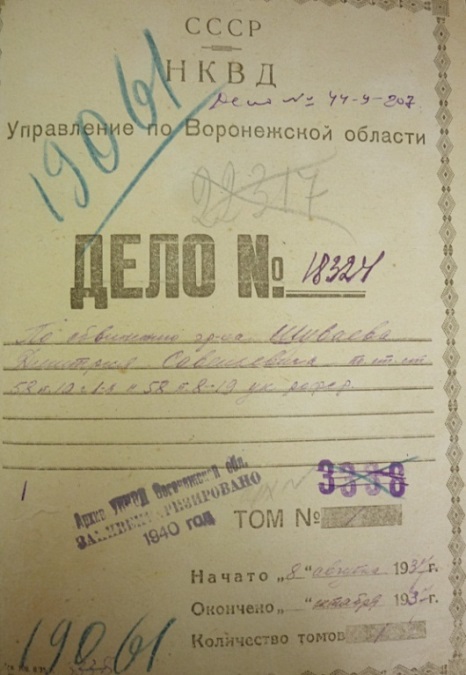 СССР
НКВД
Дело № 44-9-207
Управление по Воронежской области
19061
22317
ДЕЛО № 18324
По обвинению гр-на Шиваева
Дмитрия
58 п. 8-19 ук рсфср.
3388
Архив УНКВД Воронежской обл.
ЗАИНВЕНТАРИЗИРОВАНО
1940 год
ТОМ № 1
Начато „8“ августа 193 г.
Окончено „ “ октября 193 г.
Количество томов
19061